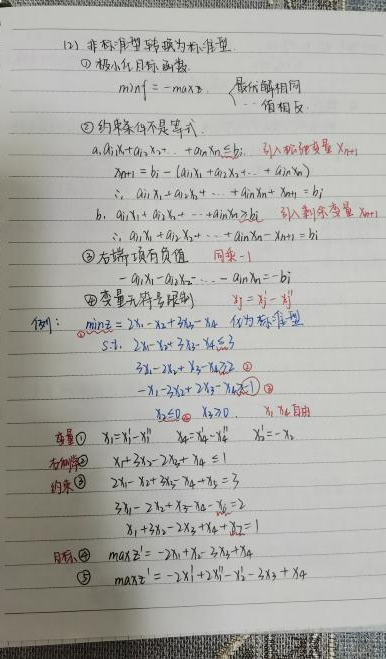 (2) 非标准型转换为标准型.
① 极小化目标函数.
minf = -maxz. { 最优解相同
… 值相反.
② 约束条件不是等式.
a. ai1x1+ai2x2+… +ainxn≤bi 引入松弛变量 xn+1
xn+1 = bi - (ai1x1+ai2x2+… +ainxn)
∴ ai1x1+ai2x2+… +ainxn+xn+1 = bi
b. ai1x1+ai2x2+… +ainxn≥bi 引入剩余变量 xn+1
∴ ai1x1+ai2x2+… +ainxn-xn+1 = bi
③ 右端项有负值 同乘-1
-ai1x1-ai2x2-… -ainxn=-bi
④ 变量无符号限制 xj = xj'-xj''
例: minz = 2x1-x2+3x3-x4 化为标准型
s.t. 2x1-x2+3x3-x4≤3
3x1-2x2+x3-x4≥2 ②
-x1-3x2+2x3-x4≥-1 ③
x2≤0 ④ x3≥0. x1 x4自由
变量① x1=x1'-x1'' x4=x4'-x4'' x2'=-x2
② x1+3x2-2x3+x4≤1
约束③ 2x1-x2+3x3-x4+x5=3
3x1-2x2+x3-x4-x6=2
x1+3x2-2x3+x4+x7=1
目标④ maxz' = -2x1+x2-3x3+x4
⑤ maxz' = -2x1'+2x1''-x2'-3x3+x4